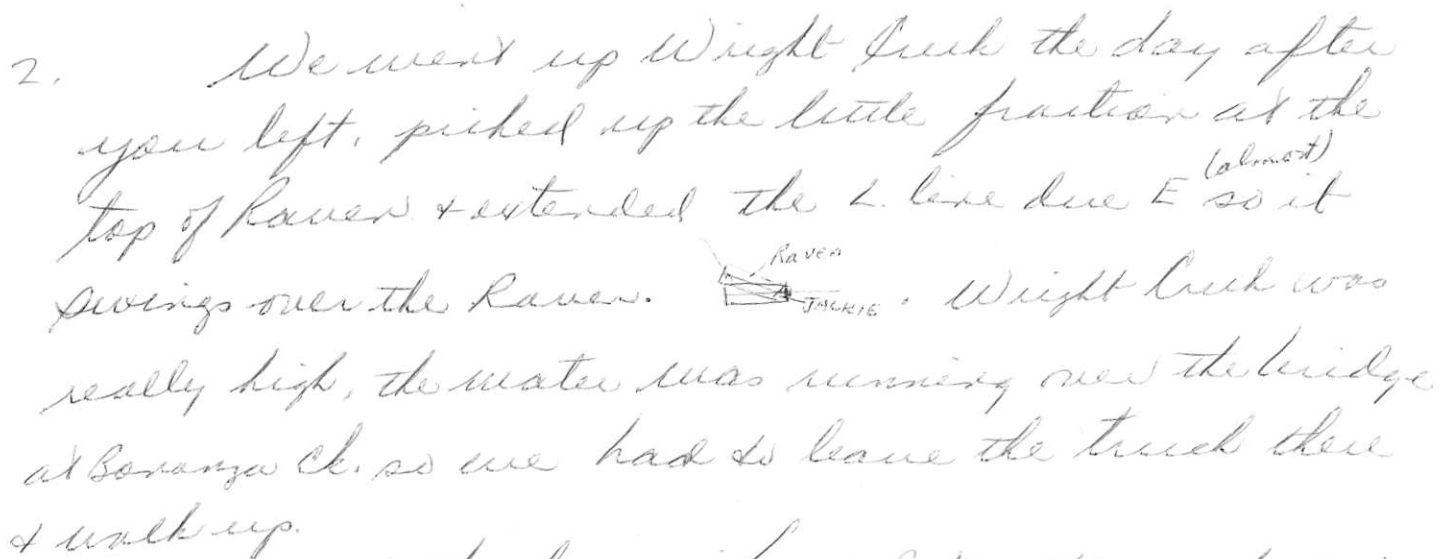 2. We went up Wright Creek the day after
you left, picked up the little fraction at the
top of Raven & extended the L. line due E (almost) so it
swings over the Raven. Raven JACKIE. Wright Creek was
really high, the water was running over the bridge
at Bonanza Ck. so we had to leave the truck there
& walk up.